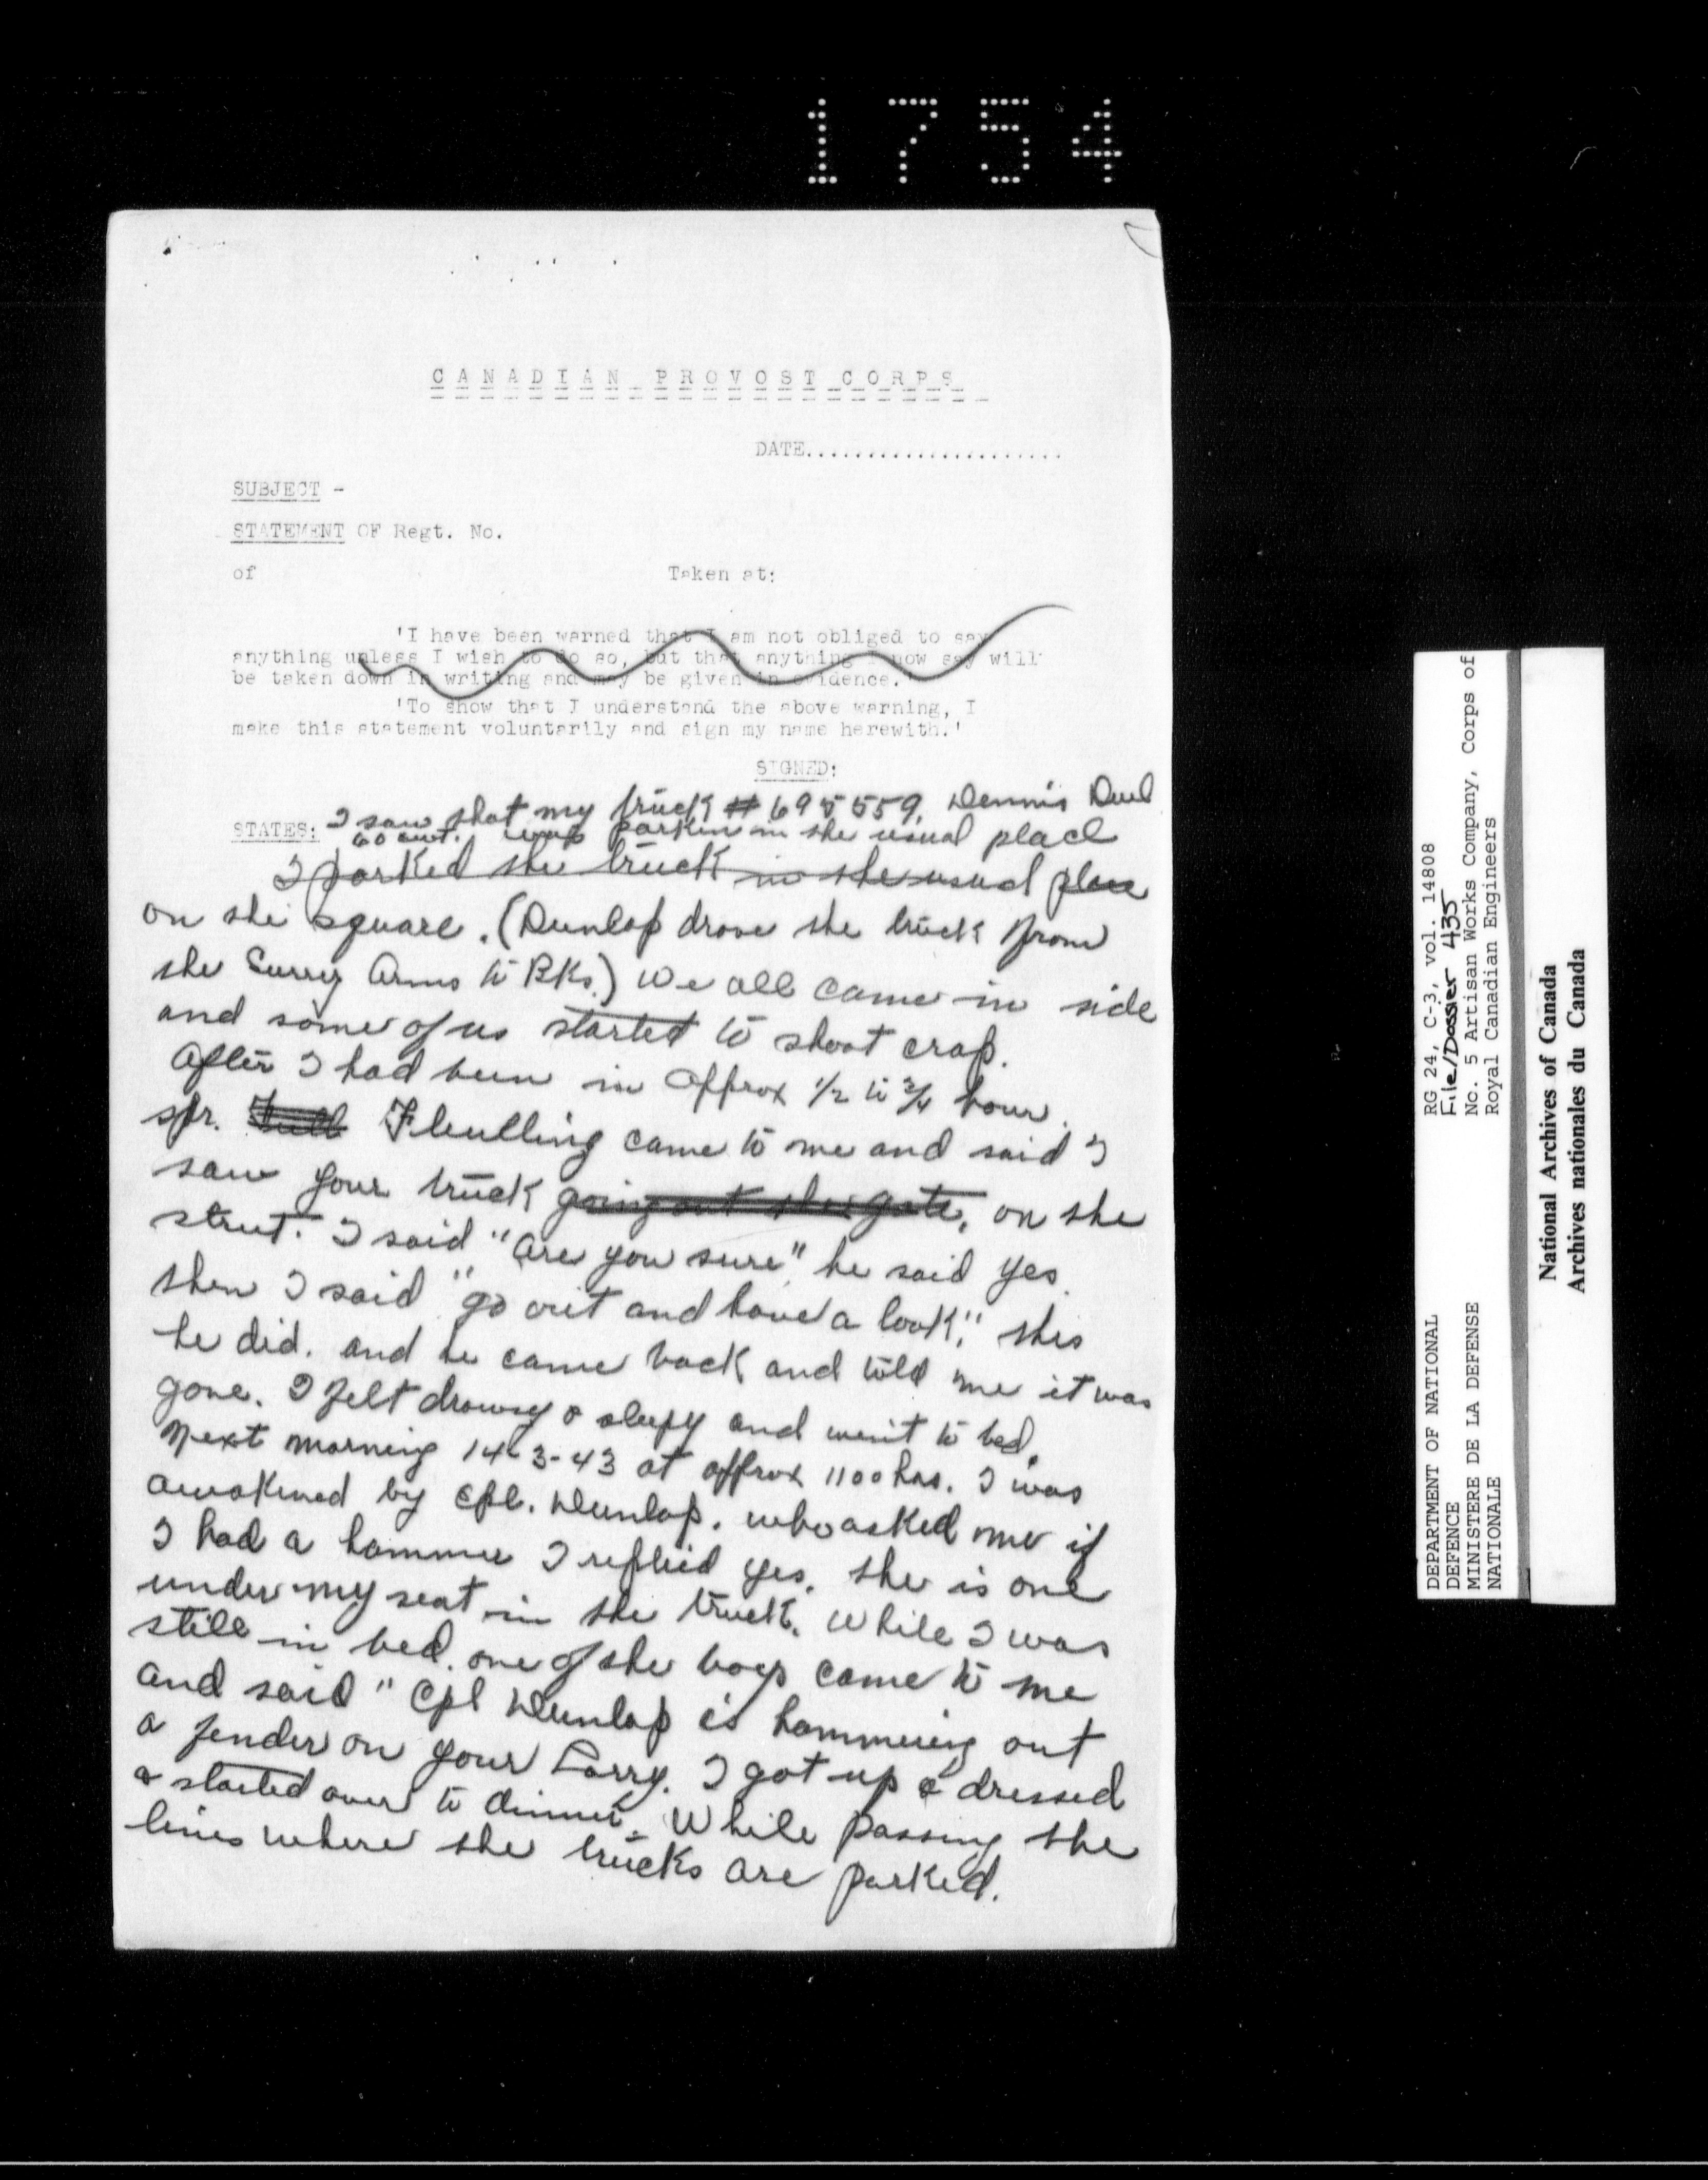 1754
CANADIAN PROVOST CORPS
DATE.....................
SUBJECT -
STATEMENT OF Regt. No.
of Taken at:
'I have been warned that I am not obliged to say
anything unless I wish to do so, but that anything I now say will
be taken down in writing and may be given in evidence.'
'To show that I understand the above warning, I
make this statement voluntarily and sign my name herewith.'
SIGNED:
I saw that my truck # 695559, Dennis
STATES: 60 cwt. was in the usual place
I parked the truck in the usual place
on the square. (Dunlop drove the truck from
the Surry Arms to BKs.) We all came in side
and some of us started to shoot crap.
After I had been in approx 1/2 to 3/4 hour.
spr. came to me and said I
saw your truck going out the gate, on the
street. I said "Are you sure" he said yes.
then I said "go out and have a look." this
he did. and he came back and told me it was
gone. I felt drowsy & sleepy and went to bed.
Next morning 14-3-43 at approx 1100 hrs. I was
awakened by Cpl. Dunlop. who asked me if
I had a hammer I replied yes. the is one
under my seat in the truck. While I was
still in bed. one of the boys came to me
and said "Cpl Dunlop is hammering out
a fender on your Lorry. I got up & dressed
& started over to dinner. While passing the
lines where the trucks are parked.
RG 24, C-3, vol. 14808
File/Dossier 435
No. 5 Artisan Works Company, Corps of
Royal Canadian Engineers
DEPARTMENT OF NATIONAL
DEFENCE
MINISTERE DE LA DEFENSE
NATIONALE
National Archives of Canada
Archives nationales du Canada